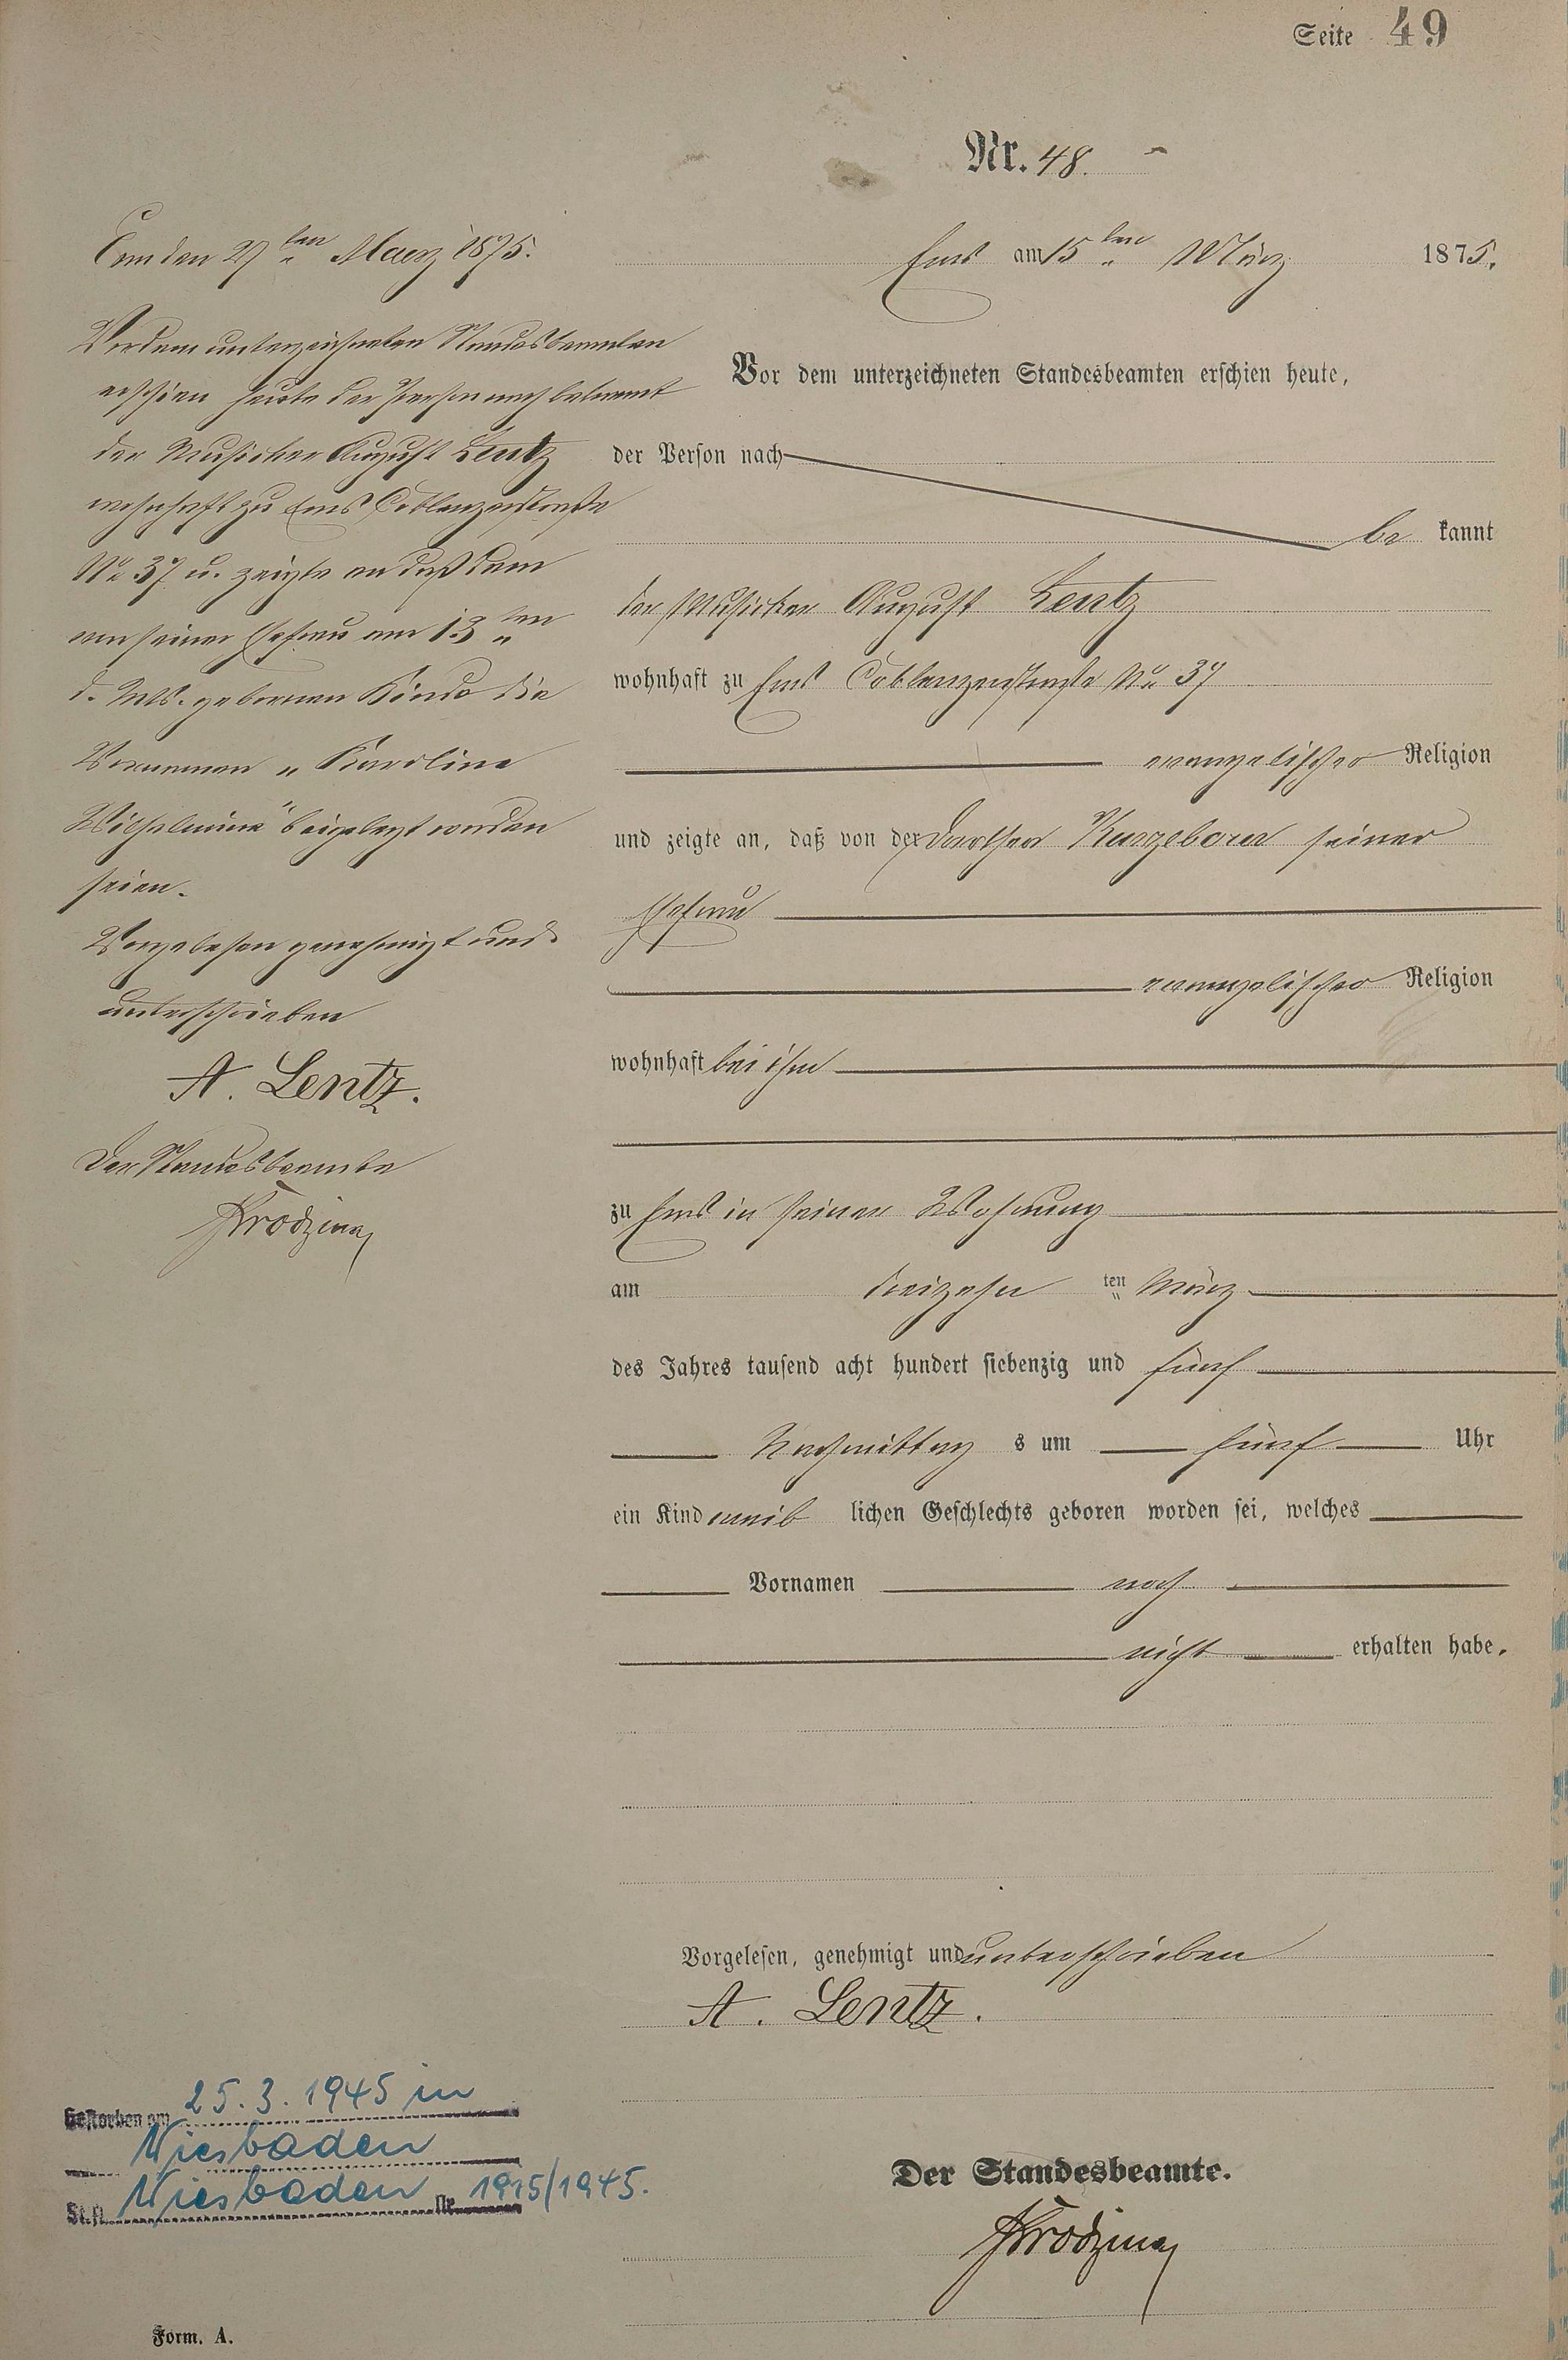 Seite 49
Nr. 48.
Ems am 15ten März 1875.
Vor dem unterzeichneten Standesbeamten erschien heute,
der Person nach
be kannt
der Musicker August Lentz
wohnhaft zu Ems Coblenzerstraße No 37
evangelischer Religion
und zeigte an, daß von der Dorothea Kurzeborn seiner
Ehefrau
evangelischer Religion
wohnhaft bei ihm
zu Ems in seiner Wohnung
am dreizehn ten März
des Jahres tausend acht hundert siebenzig und fünf
Nachmittag s um fünf Uhr
ein Kind weib lichen Geschlechts geboren worden sei, welches
Vornamen noch
nicht erhalten habe.
Vorgelesen, genehmigt und unterschrieben
A. Lentz.
Der Standesbeamte.
Ems den 27ten Maerz 1875.
Vor dem unterzeichneten Standesbeamten
erschien heute der Person nach bekannt
der Musicker August Lentz
wohnhaft zu Ems Coblenzerstraße
No 37 u. zeigte an daß dem
von seiner Ehefrau am 13ten
d. Mts. gebornen Kinde die
Vornamen „Karoline
Wilhelmine" beigelegt worden
seien.
Vorgelesen genehmigt und
unterschrieben
A. Lentz.
Der Standesbeamte
Gestorben am 25.3.1945 in
Wiesbaden
St.A. Wiesbaden Nr. 1915/1945.
Form. A.